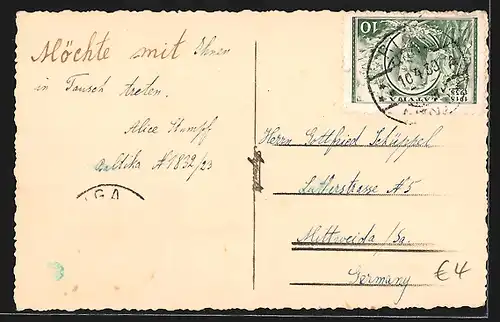 Möchte mit Ihnen
in Tausch treten.
Alice Stumpf
Baltika A 1832/23
IGA
10
LATVIJA
1918
1933
Herrn Gottfried Schüppel
Lutherstrasse A 5
Mittweida /Sa.
Germany
€4